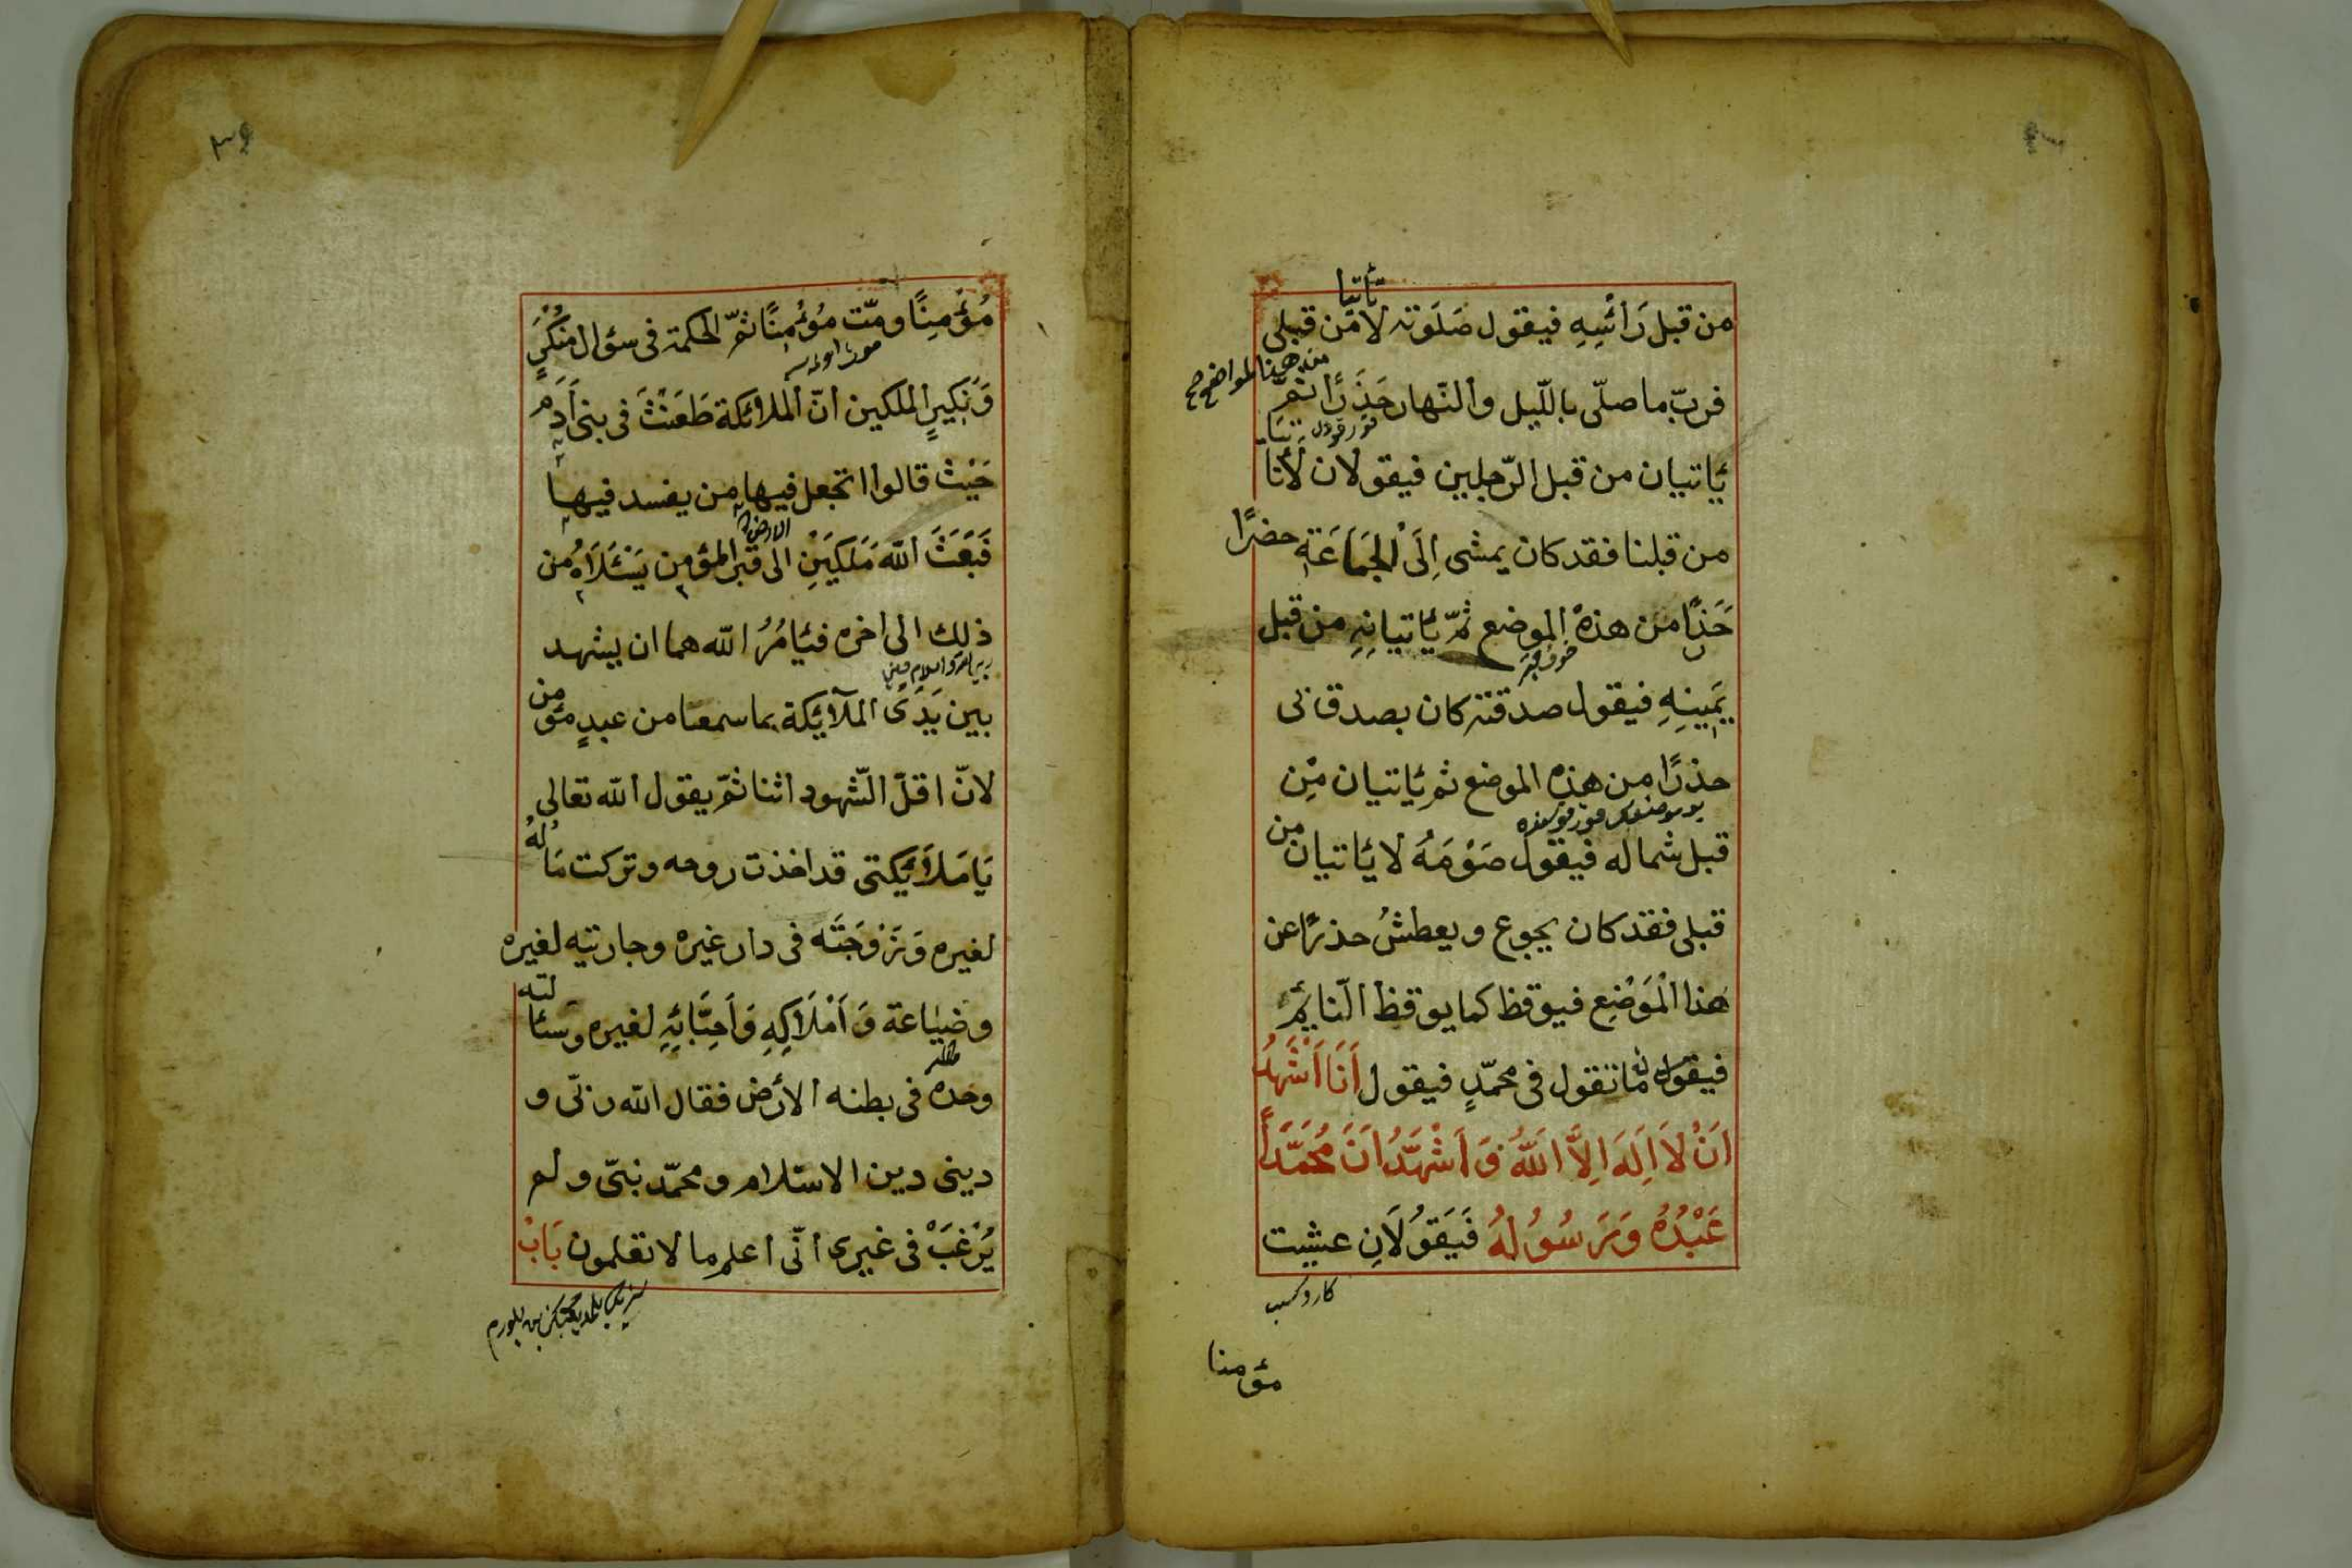 من قبل رَائسِهِ فيقول صَلَوته لا تأتيا مّن قبلى
فربّ ما صلّى بالّليل والنّهار حَذَرًا ثمّ
من هذا المواضع صح
يأتيان من قبل الرّجلين فيقولان لأتأتيَا
من قبلنا فقد كان يمشى اِلَى الجَمَاعَةِ حضرًا
حَذرًا من هذه الموضع ثمّ يأتيانِهِ من قبل
يَمينِهِ فيقول صدقته كان بصدق نى
حذرًا من هذه الموضع ثم يأتيان مِّن
قبل شماله فيقول صَوْمَهُ لا يأتيان من
قبلى فقد كان يجوع ويعطشُ حذرًا عن
هَذا الْمَوْضِع فيوقظ كما يوقظ النّايمُ
فيقول له ما تقول فى محمّدٍ فيقول اَنَا اَشْهَدُ
اَنْ لَا اِلَهَ اِلَّا اللّهُ وَ اَشْهَدُ اَنَّ مُحَمَّدًا
عَبْدُهُ وَرَسُولُهُ فَيَقُولَانِ عشيت
مؤمنا
٣٩
مُؤمِنًا ومتّ مُؤمِنًا ثمّ الحكمة فى سؤال مُنْكَرٍ
وَنَكِيرٍ الملكين انّ الملائكة طَعَنْتْ فى بنى اَدَمَ
حَيْث قالوا اتجعل فيها من يفسد فيها
الارض
فَبَعَثَ اللّه مَلَكَيَنِ الى قبر المؤمن يَسْئَلَاهُ من
ذلك الى اخره فيَأمُرُ اللّه هما ان يشهد
بين يَدَىَ الملآئِكة بما سمعنا من عبدٍ مؤمن
لانّ اقلّ الشّهود اثنا ثمّ يقول اللّه تعالى
يَا مَلَائِكتى قد اخذت روحه وتركت مَالهُ
لغيره وَزَوْجَتَه فى دار غيره وجاريته لغيره
وضيَاعة وَ اَمْلَاكِهِ وَاَحِبَّائِهِ لغيره وسئالته
وحده فى بطنه الأرض فقال اللّه ربّى و
دينى دين الاسلام ومحمّد نبىّ ولم
يُرْغبَْ فى غيرى انّى اعلم ما لا تعلمون بَابْ